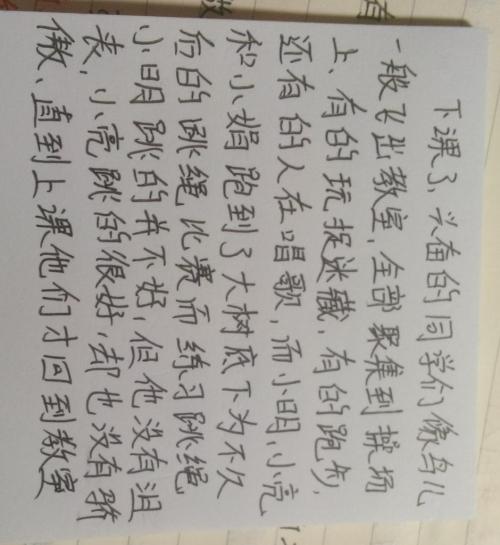 下课了、兴奋的同学们像鸟儿
一般飞出教室,全部聚集到操场
上、有的玩捉迷藏,有的跑步,
还有的人在唱歌,而小明,小亮
和小娟跑到了大树底下为不久
后的跳绳比赛而练习跳绳
小明跳的并不好,但他没有沮
丧,小亮跳的很好,却也没有骄
傲、直到上课他们才回到教室
有